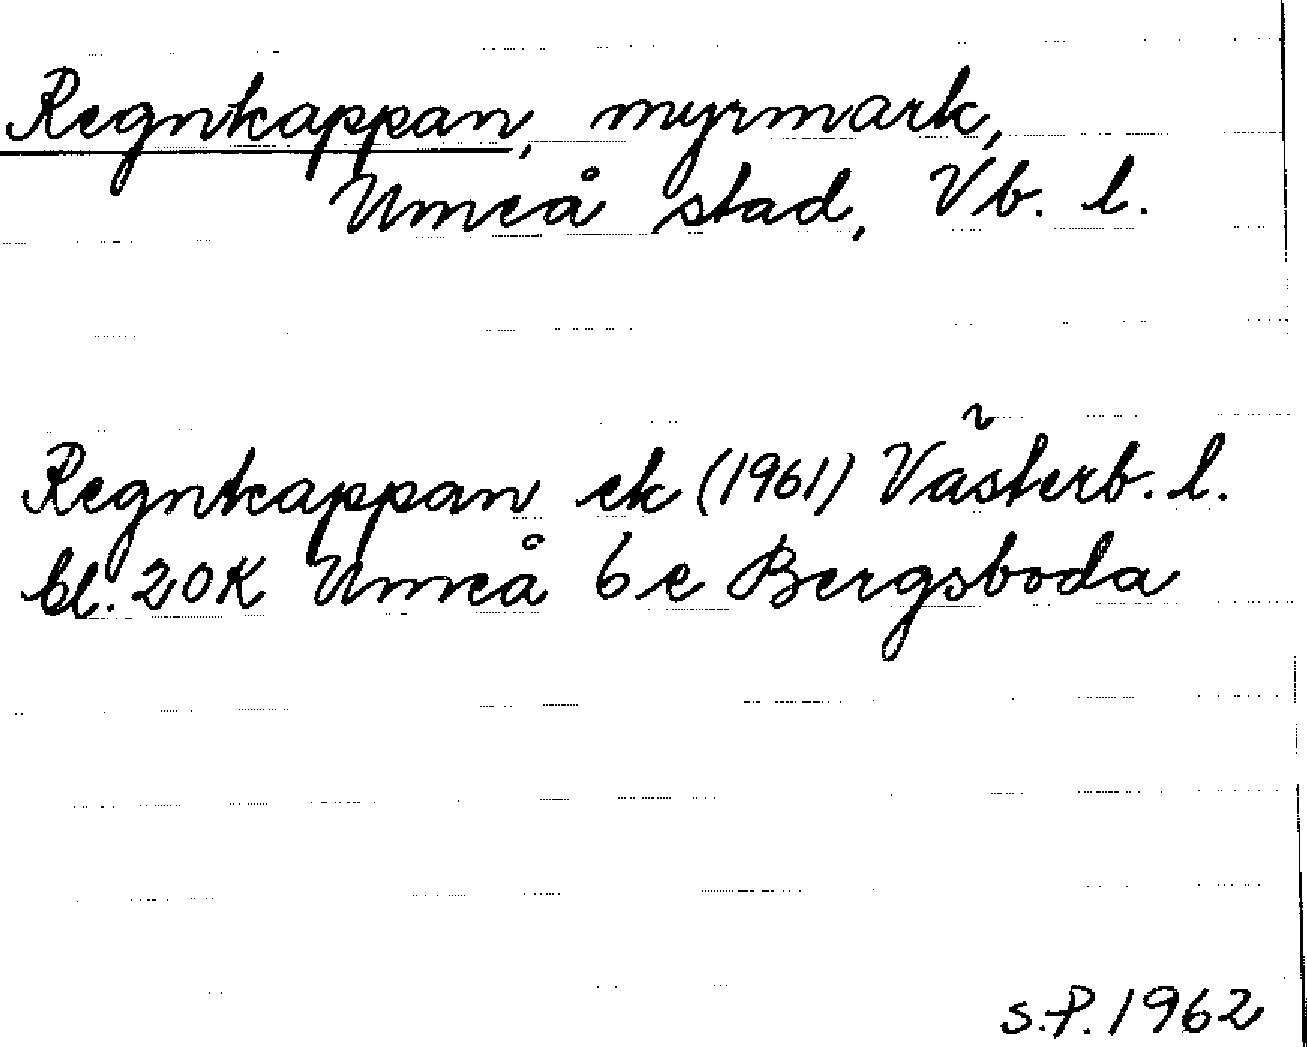 Regnkappan, myrmark,
Umeå stad, Vb. l.
Regnkappan ek (1961) Västerb. l.
bl. 20K Umeå 6e Bergsboda
S.P. 1962